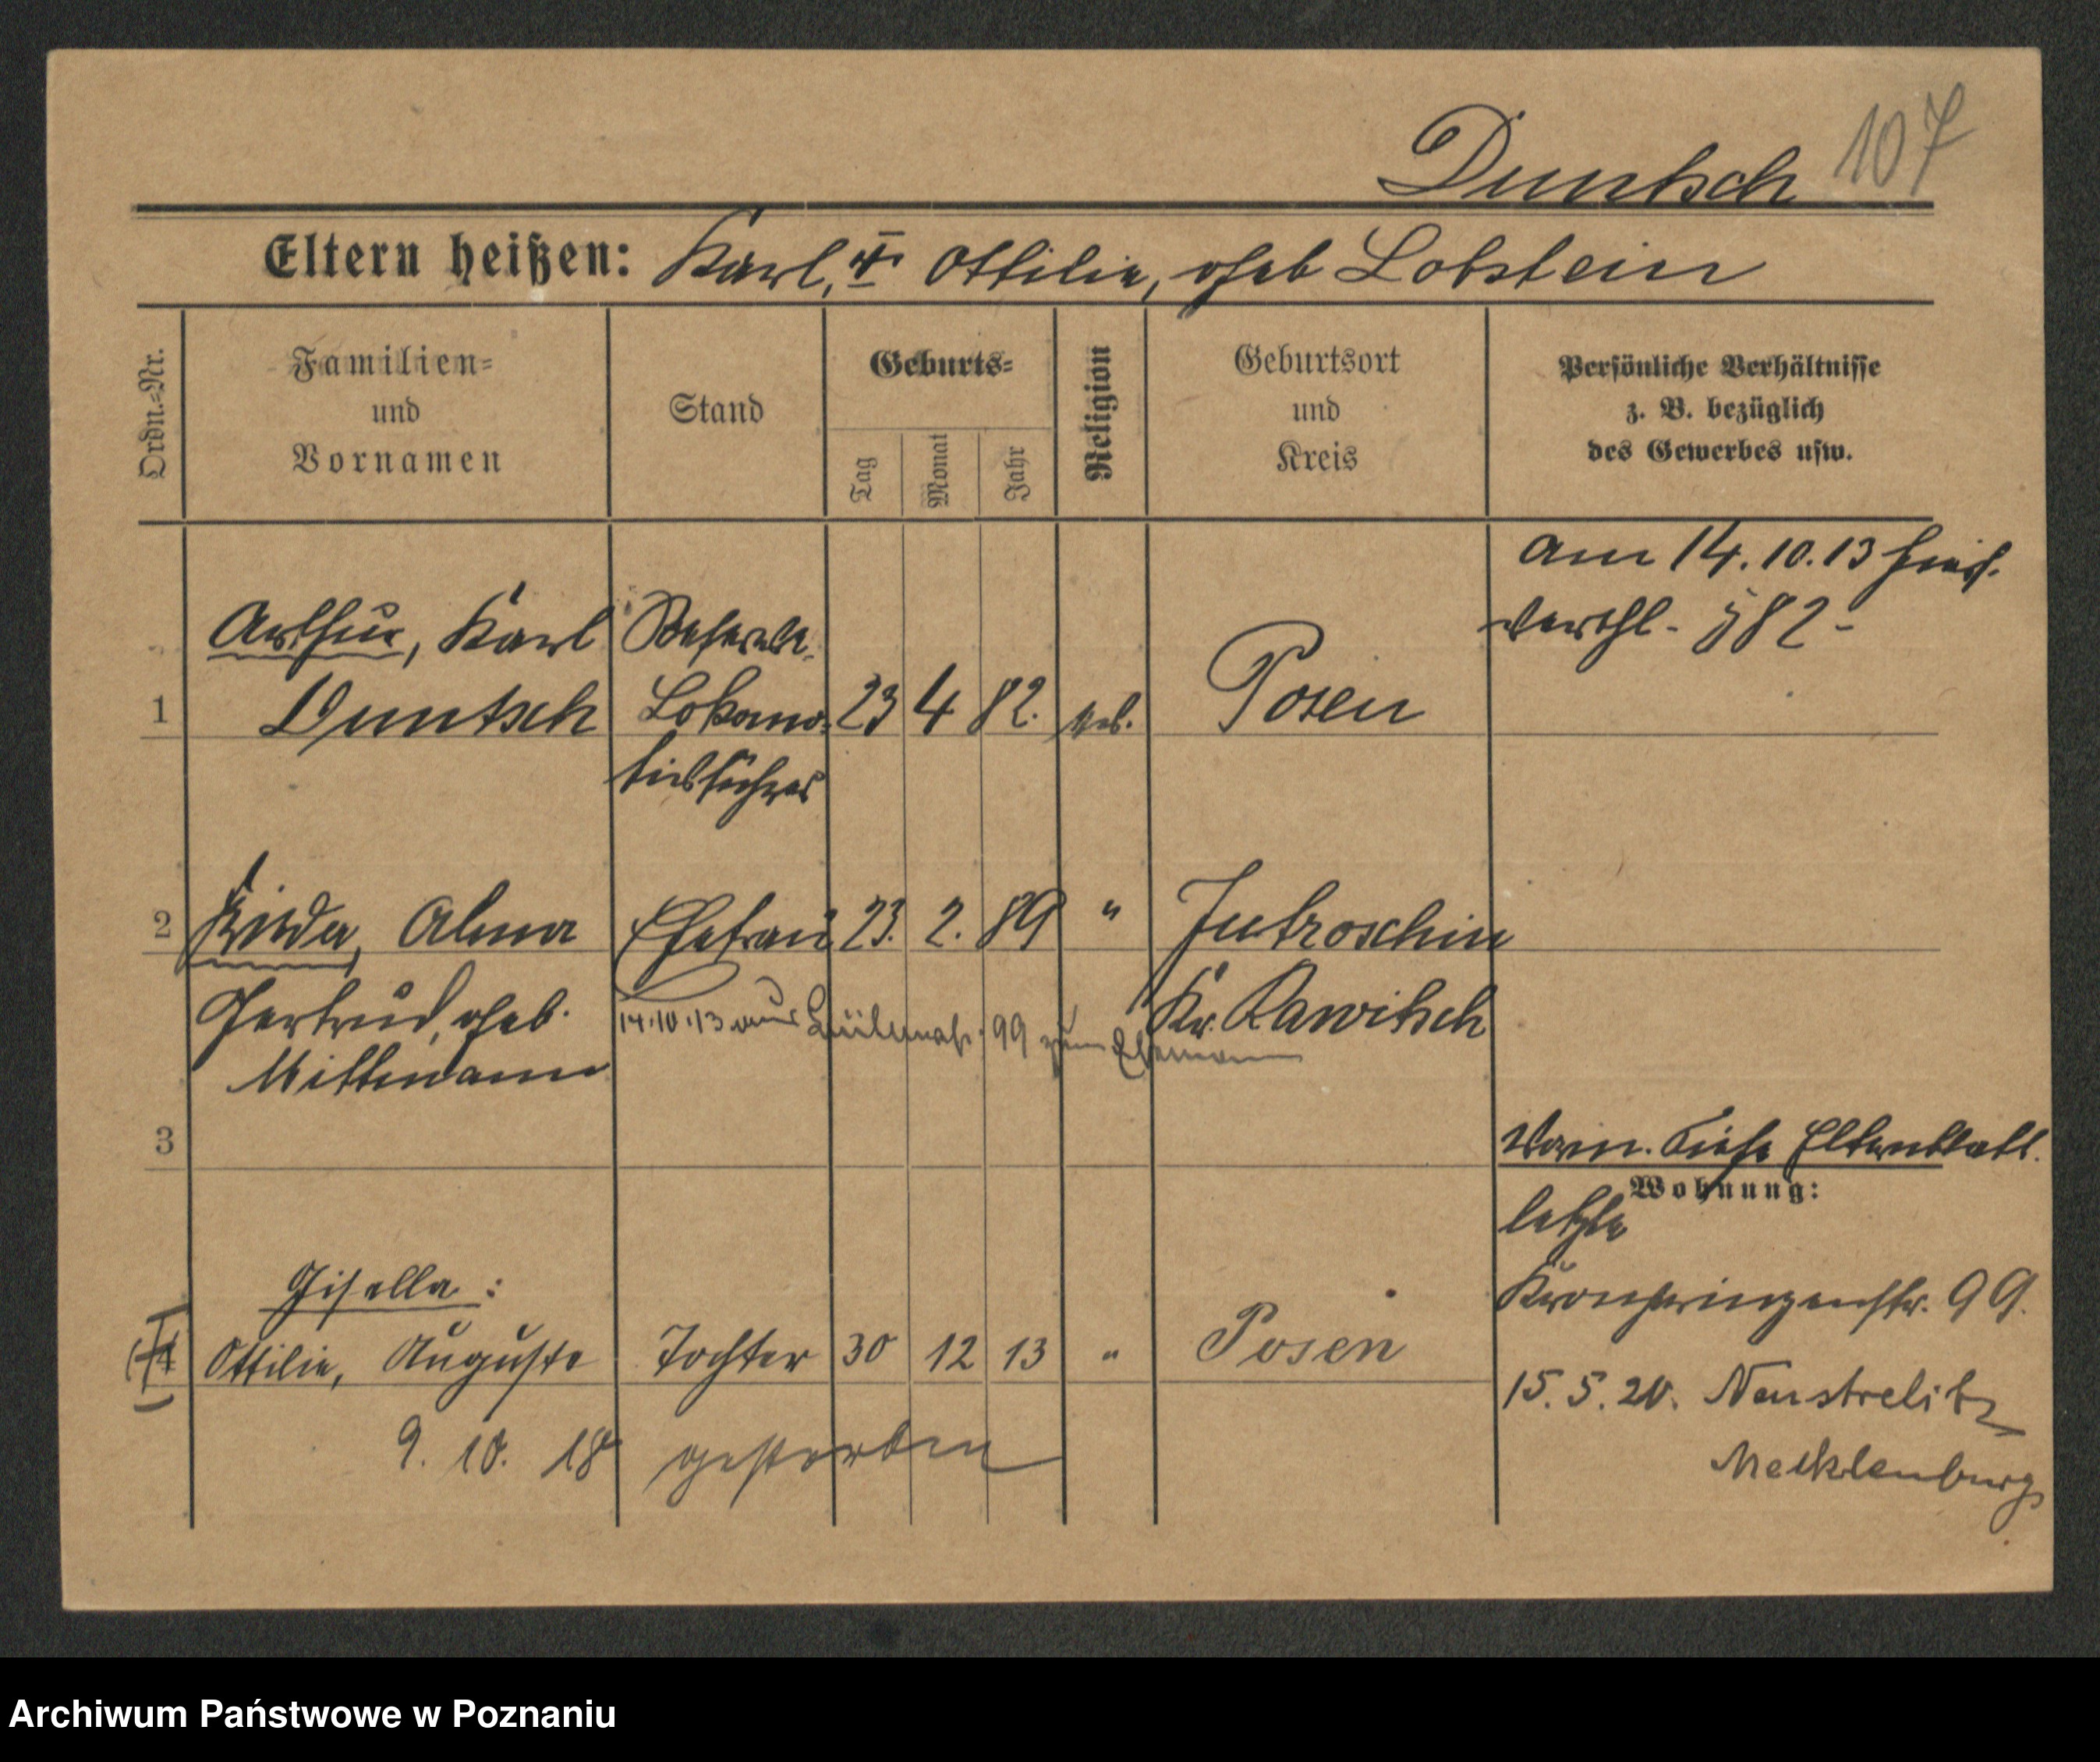 Duntsch 107
Eltern heißen: Karl, u. Ottilie, geb Lobstein
Ordn.-Nr.
Familien-
und
Vornamen
Stand
Geburts-
Tag
Monat
Jahr
Religion
Geburtsort
und
Kreis
Persönliche Verhältnisse
z. B. bezüglich
des Gewerbes usw.
am 14.10.13
582
Arthur, Karl Reserve
1 Duntsch Lokomo- 23 4 82. Posen
tivführer
2 Frieda, Alma Ehefrau 23. 2. 89 " Jutroschin
Gertrud, geb. Kr. Rawitsch
14.10.13 99 zum Ehemann
Mittmann
3
Vorm. siehe Elternblatt.
Wohnung:
letzte
Gisella:
Kronprinzenstr. 99.
4 Ottilie, Auguste Tochter 30 12 13 " Posen
15.5.20. Neustrelitz
9. 10. 18 gestorben
Mecklenburg
Archiwum Państwowe w Poznaniu